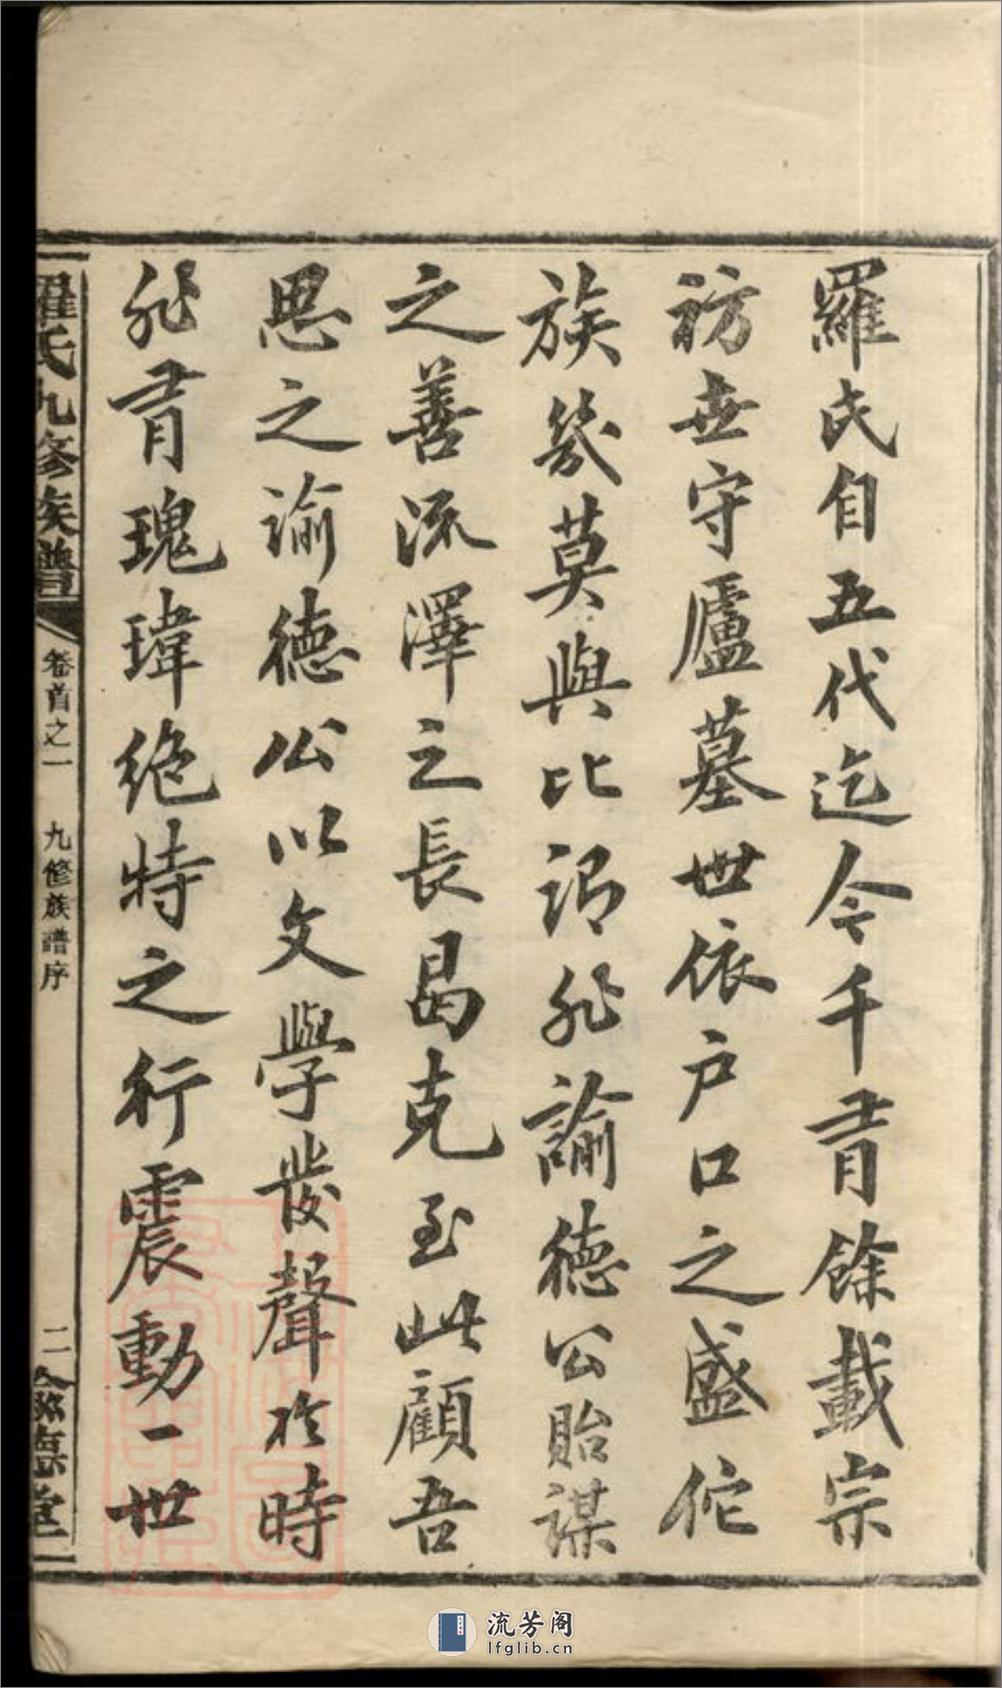 羅氏自五代迄今千有餘載宗
祊世守廬墓世依户口之盛佗
族幾莫與比詢非諭德公貽謀
之善流澤之長曷克至此顧吾
思之諭德公以文學發聲於時
非有瑰瑋絕特之行震動一世
羅氏九修族譜
卷首之一 九修族譜序
二
德堂
流芳阁
lfglib.cn